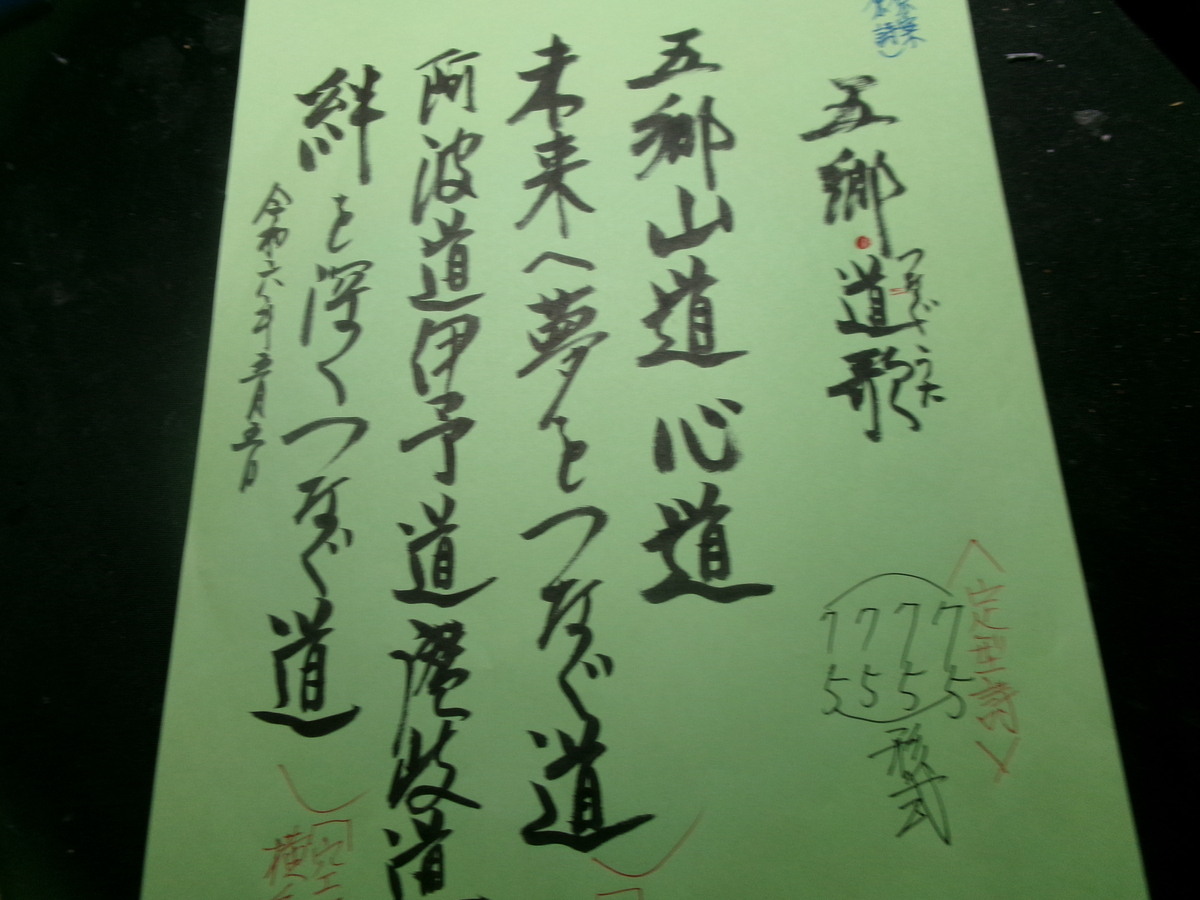 五郷・道歌
つなぐうた
五郷山道 心道
未来へ夢をつなぐ道
阿波道伊予道讃岐道
絆を深くつなぐ道
令和六年五月五日
〈定型詩〉
7 5
7 5
7 5
7 5
形式